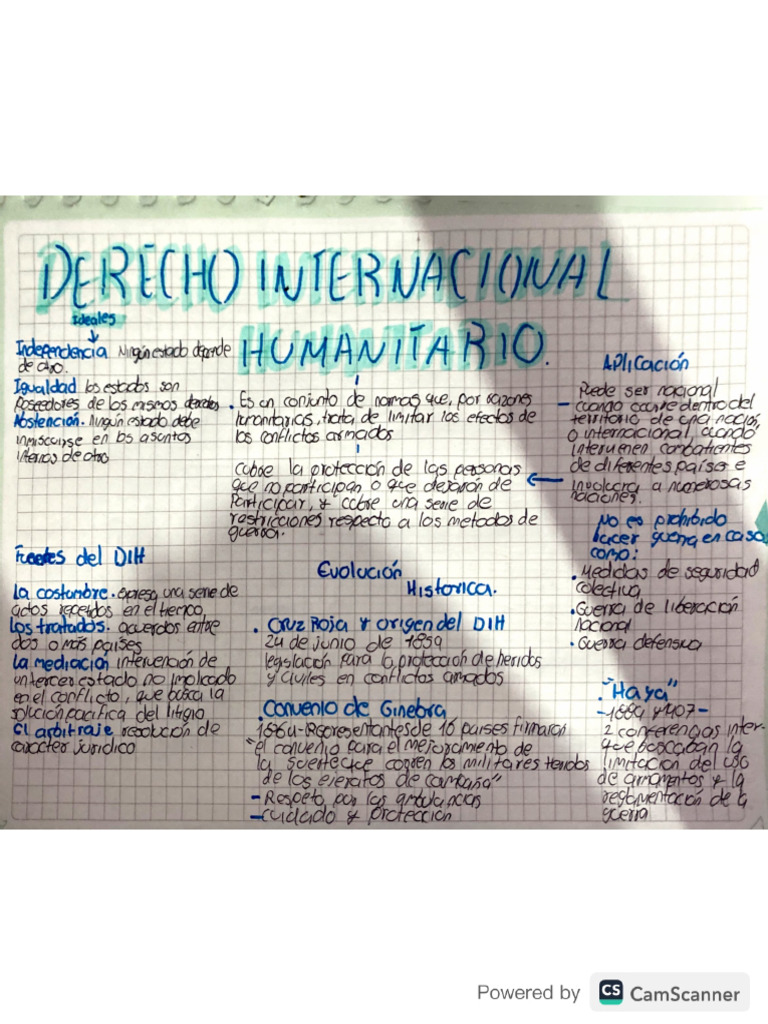 DERECHO INTERNACIONAL
HUMANITARIO.
Ideales
Independencia Ningún estado depende
de otro.
Igualdad los estados son
Poseedores de los mismos derechos
Abstención. Ningún estado debe
inmiscuirse en los asuntos
internos de otro
. Es un conjunto de normas que, por razones
humanitarias, trata de limitar los efectos de
los conflictos armados
Cubre la protección de las personas
que no participan o que dejaron de
Participar, y cubre una serie de
restricciones respecto a los metodos de
guerra.
Aplicación
- Puede ser nacional
cuando ocurre dentro del
territorio de una nación,
o internacional, cuando
intervienen combatientes
de diferentes países e
involucra a numerosas
naciones.
No es prohibido
hacer guerra en caso
como:
. Medidas de seguridad
colectiva
. Guerra de liberación
nacional
. Guerra defensiva
Fuentes del DIH
La costumbre. expresa una serie de
actos repetidos en el tiempo,
Los tratados. acuerdos entre
dos o más países
La mediación intervención de
un tercer estado no implicado
en el conflicto, que busca la
solución pacifica del litigio
El arbitraje resolución de
carácter jurídico
Evolución
Historica.
. Cruz Roja y origen del DIH
24 de junio de 1859
legislación para la protección de heridos
y civiles en conflictos armados
. Convenio de Ginebra
1864-Representantes de 16 países firmaron
"el convenio para el mejoramiento de
la suerte que corren los militares heridos
de los ejercitos de campaña"
- Respeto por las ambulancias
- cuidado y protección
. "Haya"
2 conferencias inter-
que buscaban la
limitación del uso
de armamentos y la
reglamentación de la
guerra
Powered by CS CamScanner